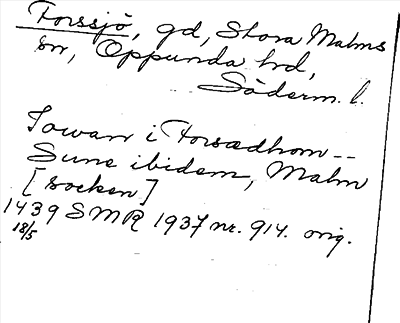 Forssjö, gd, Stora Malms
sn, Oppunda hd,
Söderm. l.
Iowan i Forsædhom --
Sune ibidem, Malm
[socken]
1439 SMR 1937 nr. 914. orig.
18/5